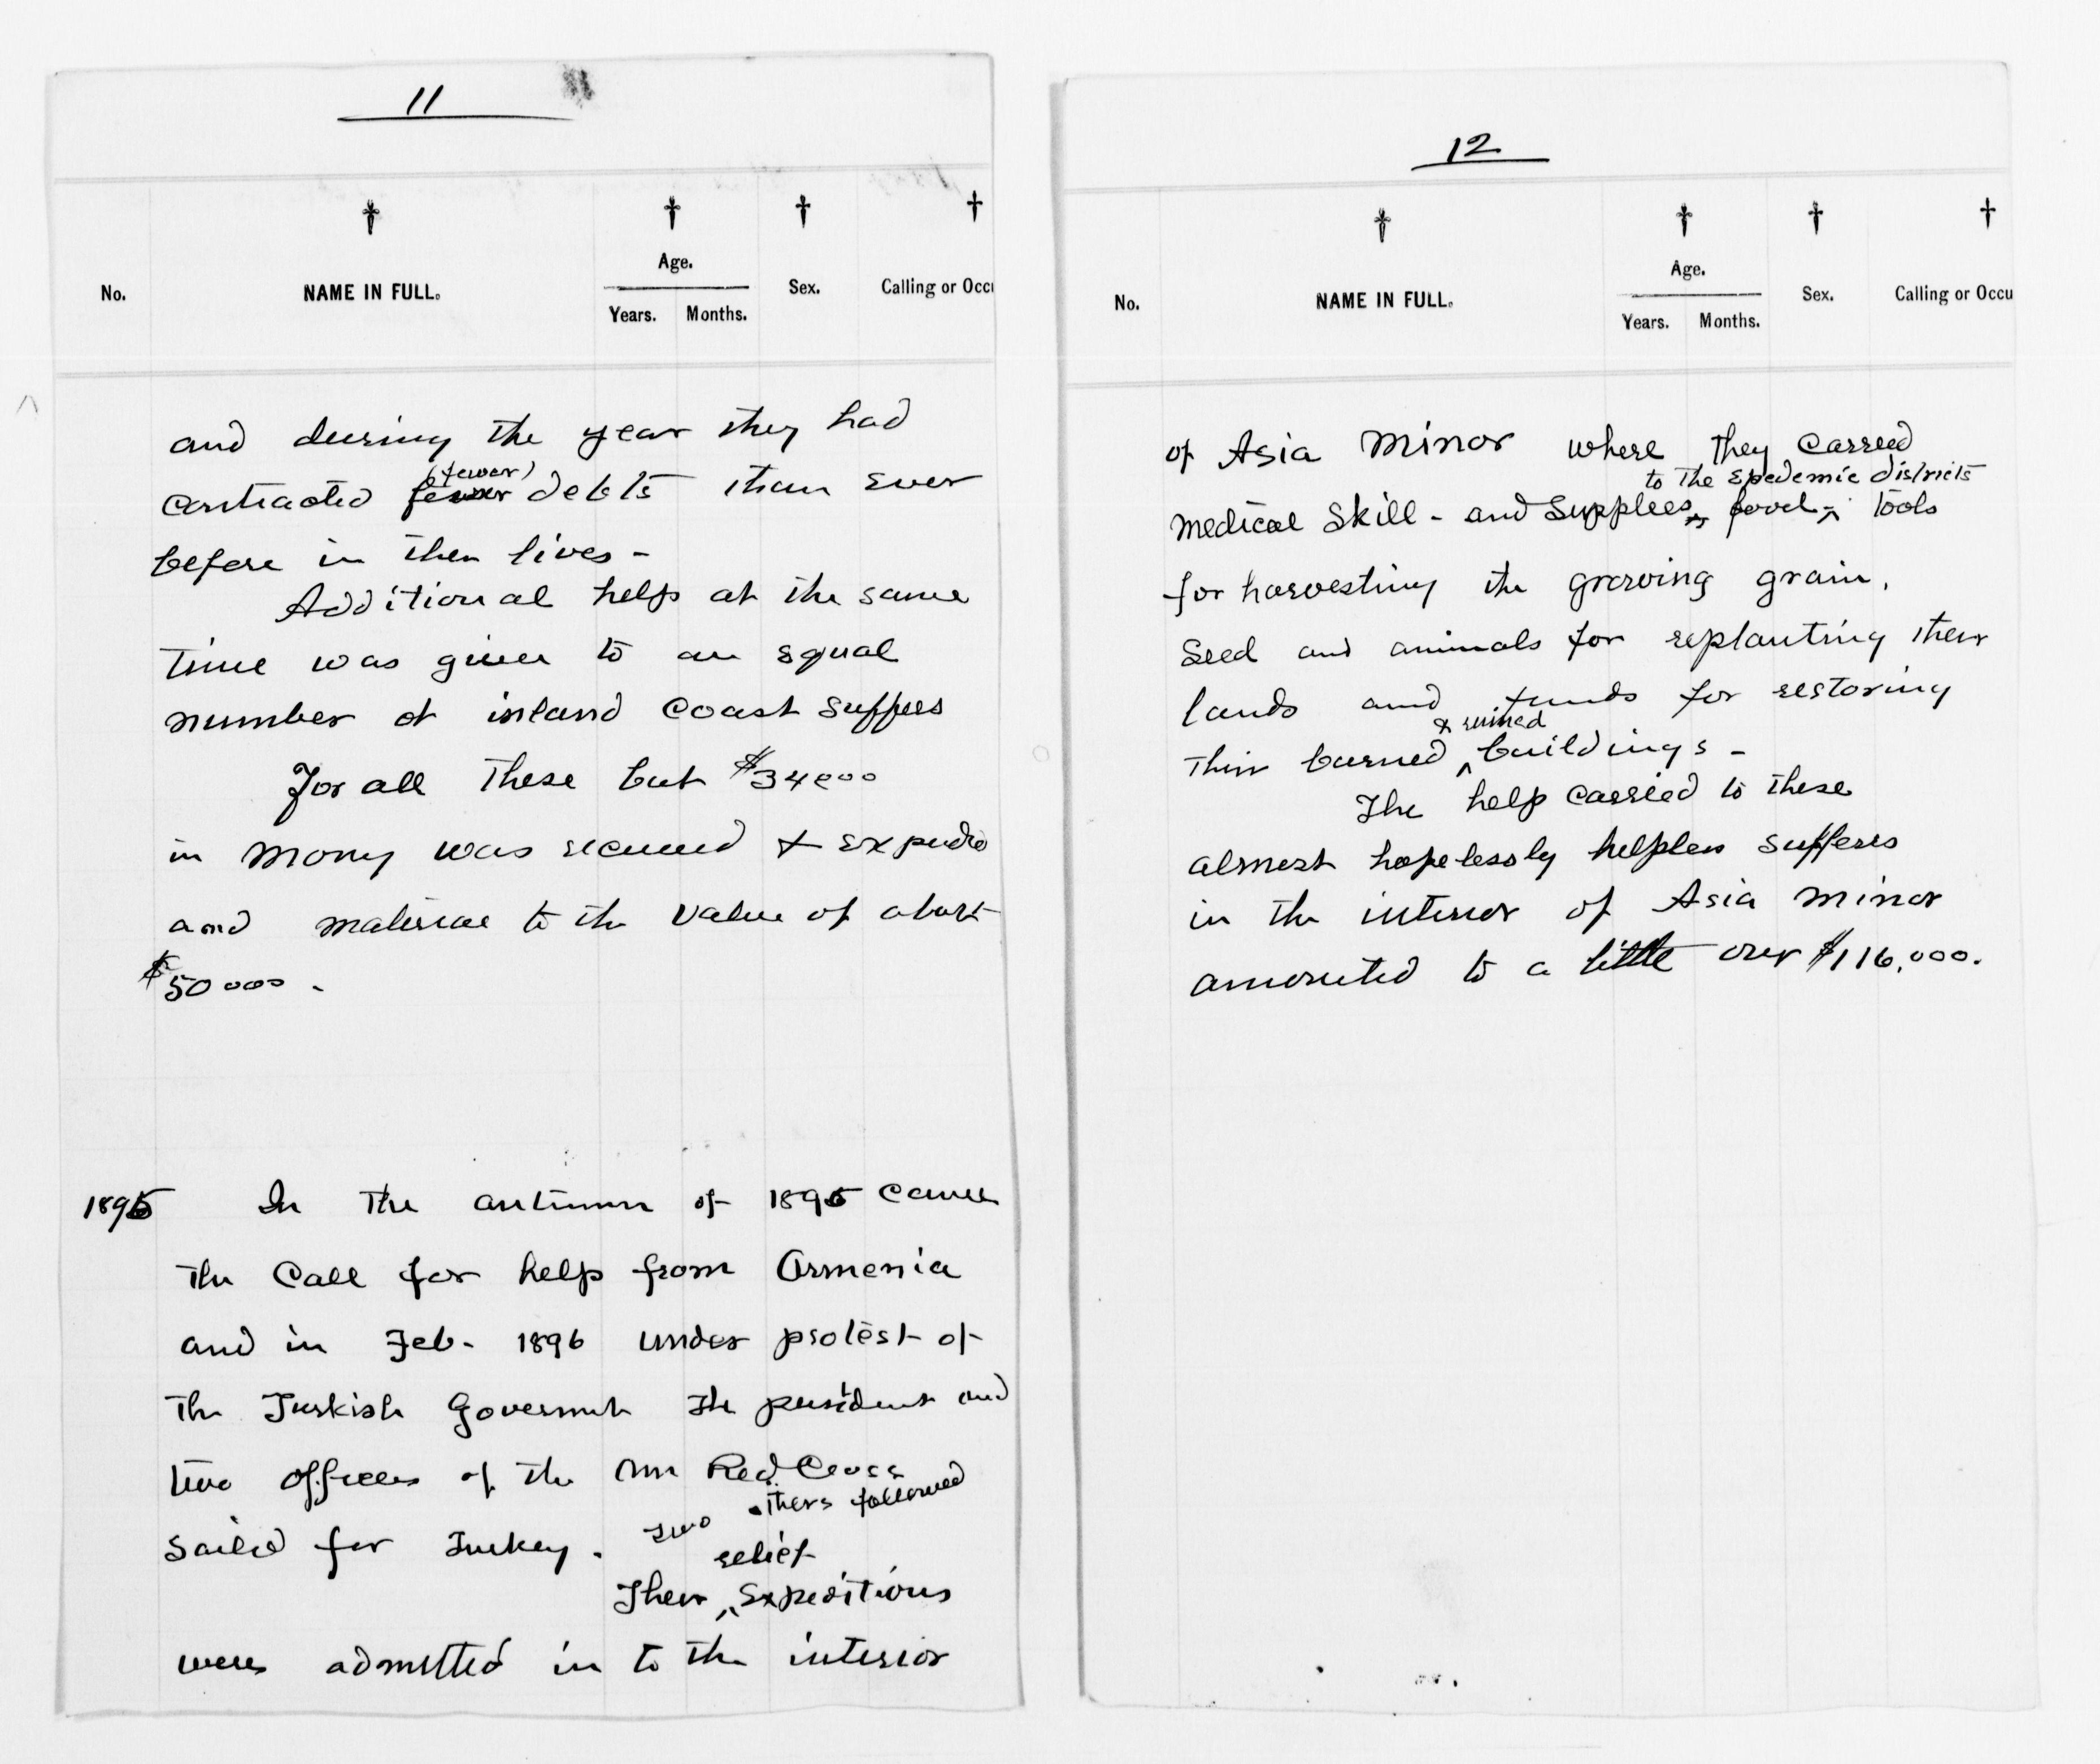 11
†
†
†
†
No.
NAME IN FULL.
Age.
Years.
Months.
Sex.
Calling or Occu
and during the year they had
(fewer)
contracted fewer debts than ever
before in their lives -
Additional help at the same
time was given to an equal
number of inland coast suffers
For all these but $34000
in mony was secured & expended
and material to the value of about
$50000 .
1895 In the autumn of 1895 came
the Call for help from Armenia
and in Feb. 1896 under protest of
the Turkish Government the president and
two officers of the Am Red Cross
sailed for Turkey . two others followed
relief
Their ^ Expeditions
were admitted in to the interior
12
†
†
†
†
No.
NAME IN FULL.
Age.
Years.
Months.
Sex.
Calling or Occu
of Asia Minor where they carried
to the Epedemic districts
Medical Skill - and Supplies ^ food - ^ tools
for harvesting the growing grain,
Seed and animals for replanting their
lands and funds for restoring
& ruined
their burned ^ buildings -
The help carried to these
almost hopelessly helpless sufferes
in the interior of Asia Minor
amounted to a little over $116,000.